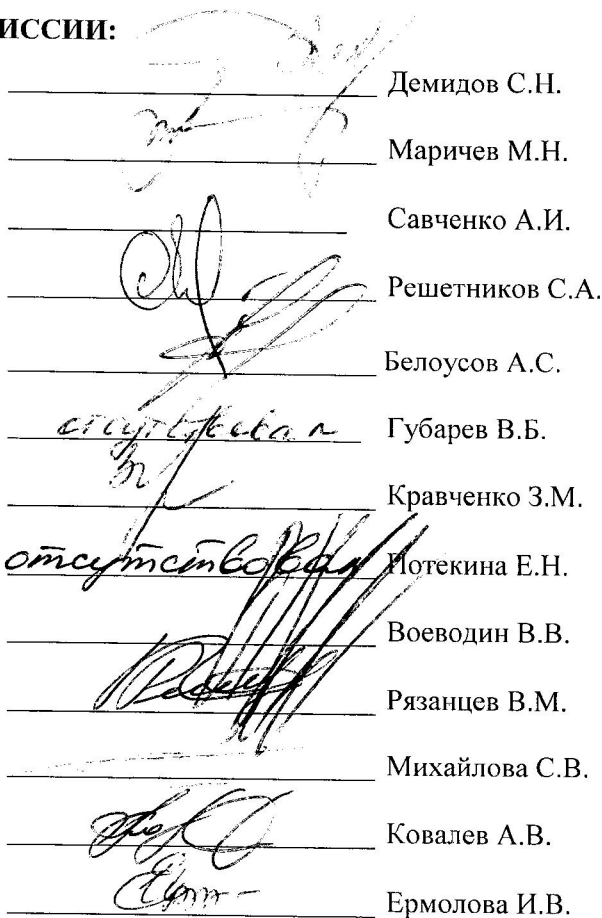 ИССИИ:
Демидов С.Н.
Маричев М.Н.
Савченко А.И.
Решетников С.А.
Белоусов А.С.
отсутствовал Губарев В.Б.
Кравченко З.М.
отсутствовал Потекина Е.Н.
Воеводин В.В.
Рязанцев В.М.
Михайлова С.В.
Ковалев А.В.
Ермолова И.В.